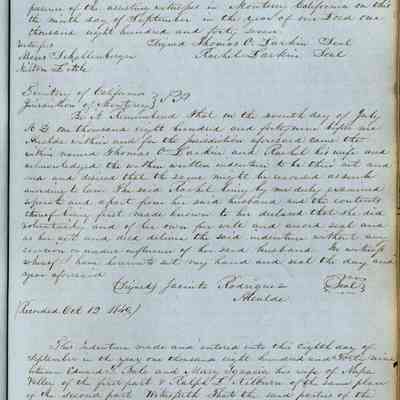 presence of the assisting witnesses in Monterey California on this
the ninth day of September in the year of our Lord one
thousand eight hundred and forty seven
Witnesses Signed Thomas O. Larkin Seal
Moses Schallenberger Rachel Larkin Seal
Milton Little
Territory of California
Jurisdiction of Monterey } SS
Be it Remembered That on the seventh day of July
A D on thousand eight hundred and forty nine before me
Alcalde within and for the jurisdiction aforesaid came the
within named Thomas O Larkin and Rachel his wife and
acknowledged the within written indenture to be their act and
and desired that the same might be recorded as such
according to law. The said Rachel being by me duly examined
separate and apart from her said husband and the contents
thereof being first made known to her declared that she did
voluntarily and of her own free will and accord seal and
as her act and deed deliver the said indenture without any
coercion or undue influence of her said husband. In witness
whereof I have hereunto set my hand and seal the day and
year aforesaid
(Signed) Jacinto Rodriguez {Seal}
Alcalde
(Recorded Oct 12 1849)
This Indenture made and entered into this Eighth day of
September in the year one thousand eight hundred and Forty nine
between Edward T. Bale and Mary Ygnacia his wife of Napa
Valley of the first part & Ralph L Kilburn of the same place
of the second part Witnesseth That the said parties of the